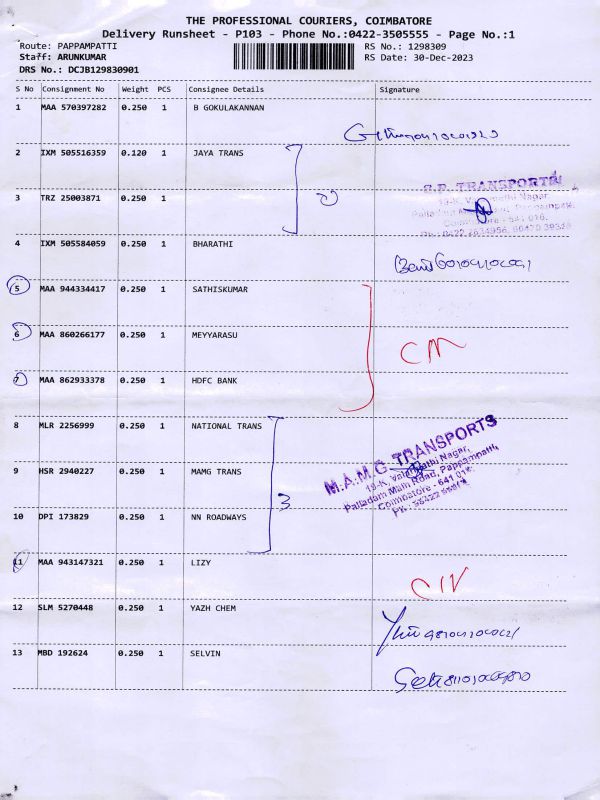 THE PROFESSIONAL COURIERS, COIMBATORE
Delivery Runsheet - P103 - Phone No.:0422-3505555 - Page No.:1
Route: PAPPAMPATTI RS No.: 1298309
Staff: ARUNKUMAR RS Date: 30-Dec-2023
DRS No.: DCJB129830901
S No Consignment No Weight PCS Consignee Details Signature
1 MAA 570397282 0.250 1 B GOKULAKANNAN
2 IXM 505516359 0.120 1 JAYA TRANS
S.R. TRANSPORTS
3 TRZ 25003871 0.250 1
4 IXM 505584059 0.250 1 BHARATHI
5 MAA 944334417 0.250 1 SATHISKUMAR
6 MAA 860266177 0.250 1 MEYYARASU
7 MAA 862933378 0.250 1 HDFC BANK
8 MLR 2256999 0.250 1 NATIONAL TRANS
M.A.M.G TRANSPORTS
19-K, Valanpathi Nagar,
Palladam Main Road, Pappampatti,
9 HSR 2940227 0.250 1 MAMG TRANS
3
10 DPI 173829 0.250 1 NN ROADWAYS
11 MAA 943147321 0.250 1 LIZY
12 SLM 5270448 0.250 1 YAZH CHEM
13 MBD 192624 0.250 1 SELVIN